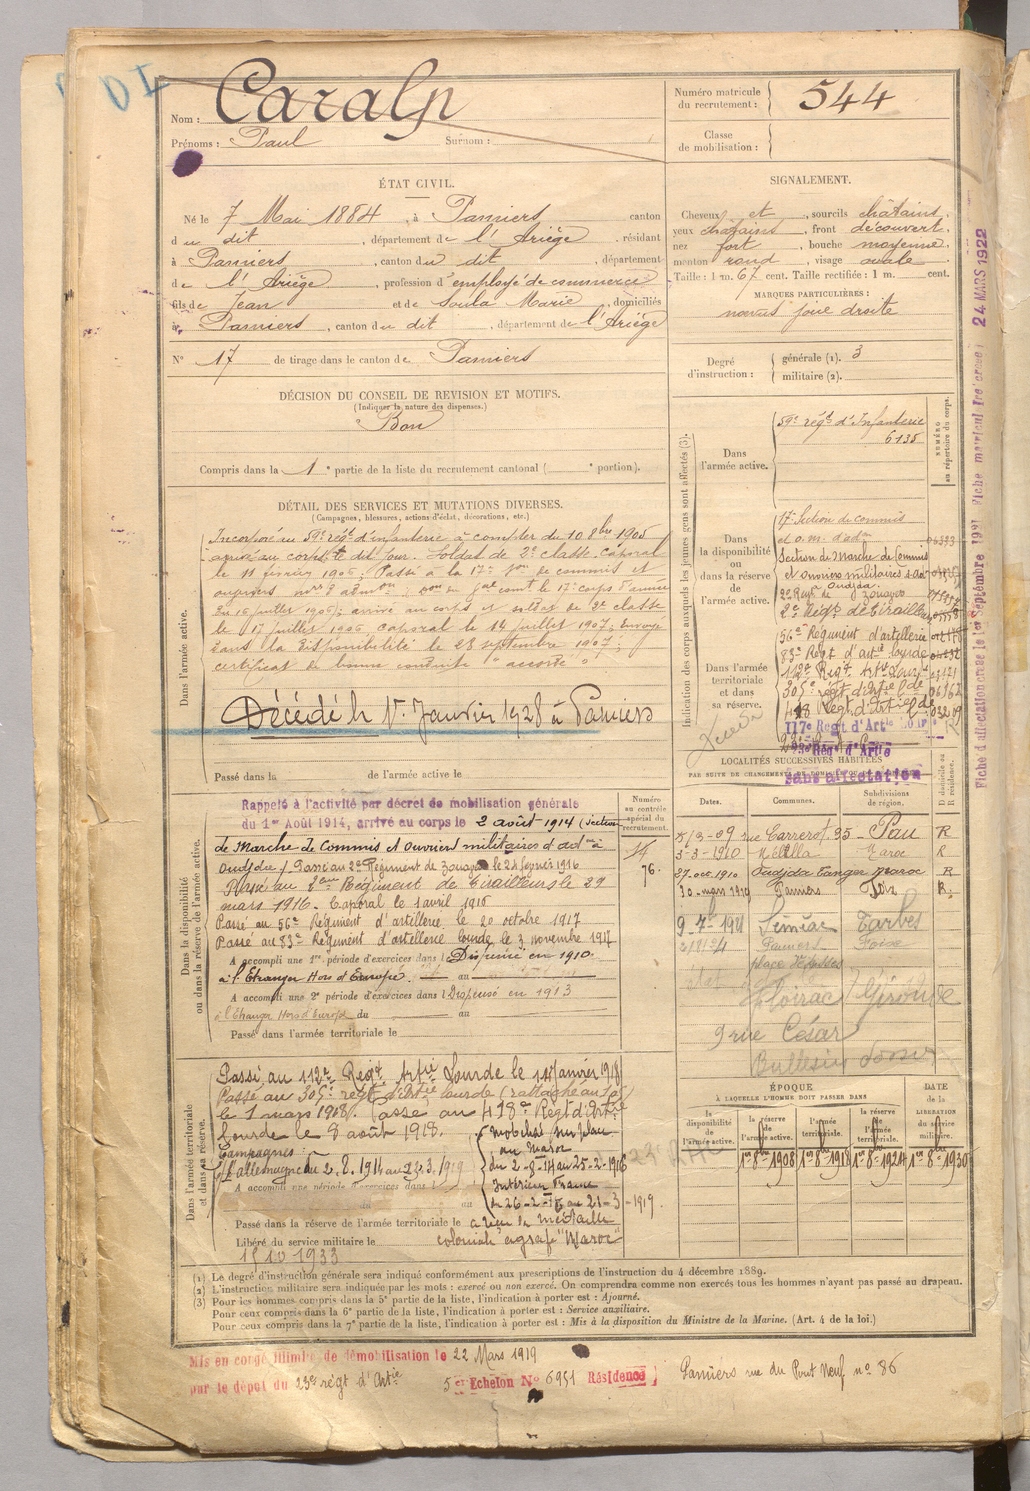 Nom : Caralp
Prénoms : Paul Surnom :
Numéro matricule du recrutement : 544
Classe de mobilisation :
ÉTAT CIVIL.
Né le 7 Mai 1884, à Pamiers canton
du dit, département de l'Ariège, résidant
à Pamiers, canton du dit, département
de l'Ariège, profession d'employé de commerce
fils de Jean et de Soula Marie, domiciliés
à Pamiers, canton du dit, département de l'Ariège
N° 17 de tirage dans le canton de Pamiers
SIGNALEMENT.
Cheveux et, sourcils châtains
yeux châtains, front découvert
nez fort, bouche moyenne
menton rond, visage ovale
Taille : 1 m. 67 cent. Taille rectifiée : 1 m. cent.
MARQUES PARTICULIÈRES :
noevus joue droite
Degré d'instruction : générale (1). 3
militaire (2).
DÉCISION DU CONSEIL DE REVISION ET MOTIFS.
(Indiquer la nature des dispenses.)
Bon
Compris dans la 1e partie de la liste du recrutement cantonal ( e portion).
DÉTAIL DES SERVICES ET MUTATIONS DIVERSES.
(Campagnes, blessures, actions d'éclat, décorations, etc.)
Dans l'armée active.
Incorporé au 59e régt d'infanterie à compter du 10 8bre 1905
arrivé au corps le dit jour. Soldat de 2e classe. Caporal
le 11 février 1906; Passé à la 17e Son de commis et
du 15 juillet 1906; arrivé au corps et soldat de 2e classe
le 17 juillet 1906 caporal le 14 juillet 1907; Envoyé
dans la disponibilité le 23 septembre 1907;
certificat de bonne conduite "accordé"
Décédé le 1r Janvier 1928 à Pamiers
Passé dans la de l'armée active le
Indication des corps auxquels les jeunes gens sont affectés (3).
NUMÉRO au répertoire du corps.
Dans l'armée active.
59e régt d'Infanterie
6135
Dans la disponibilité ou dans la réserve de l'armée active.
17e Section de commis
et o. m. d'adon
Section de Marche de Commis
et ouvriers militaires d'ad
Oudjda
2e Régt de zouaves
2e Régt de tirailleurs
56e Régiment d'artillerie
83e Régt d'artie lourde
Dans l'armée territoriale et dans sa réserve.
112e Régt Artie Lourde
305e régt d'artie lde
418 Régt d'Artie lde
117e Régt d'Artie
Régt d'Artie
Sans affectation
Fiche matricul
24 MARS 1922
LOCALITÉS SUCCESSIVES HABITÉES
Dates. Communes. Subdivisions de région. D. domicile ou R. résidence.
3-09 rue Carrerot 35 Pau R
3-3-1910 Mélilla Maroc R
27 oct. 1910 Oudjda Tanger Maroc R
30 mars 1919 Pamiers Foix R.
9-7-1921 Séméac Tarbes
Pamiers Foix
Floirac Gironde
9 rue César
Dans la disponibilité ou dans la réserve de l'armée active.
Numéro au contrôle spécial du recrutement.
76.
Rappelé à l'activité par décret de mobilisation générale
du 1er Août 1914, arrivé au corps le 2 août 1914 (Section
de Marche de Commis et Ouvriers militaires d'adon à
Oudjda) Passé au 2e Régiment de zouaves le 24 février 1916
Passé au 2eme Régiment de Tirailleurs le 29
mars 1916. Caporal le 1 avril 1916
Passé au 56e Régiment d'artillerie le 20 octobre 1917
Passé au 83e Régiment d'artillerie lourde le 3 novembre 1917
A accompli une 1re période d'exercices dans l Dispensé en 1910.
à l'Etranger Hors d'Europe. au
A accompli une 2e période d'exercices dans l Dispensé en 1913
à l'Etranger Hors d'Europe du au
Passé dans l'armée territoriale le
Dans l'armée territoriale et dans sa réserve.
Passé au 112e Régt Artie Lourde le Janvier 1918
Passé au 305e régt d'artie lourde
le 1 mars 1918. Passé au 418e Régt d'Artie
Lourde le 8 août 1918.
Campagnes:
C/ l'allemagne du 2.8.1914 au 23.3.1919
mobilisé sur place
au Maroc
du 2-8-14 au 25-2-1916
Intérieur France
du 26-2-16 au 21-3-1919.
A accompli une période d'exercices dans l
Passé dans la réserve de l'armée territoriale le
a reçu la médaille
coloniale agrafe "Maroc"
Libéré du service militaire le
15 10 1933
ÉPOQUE
À LAQUELLE L'HOMME DOIT PASSER DANS
la disponibilité de l'armée active.
la réserve de l'armée active. 1er 8bre 1908
l'armée territoriale. 1er 8bre 1918
la réserve de l'armée territoriale. 1er 8bre 1924
DATE de la LIBÉRATION du service militaire. 1er 8bre 1930
(1) Le degré d'instruction générale sera indiqué conformément aux prescriptions de l'instruction du 4 décembre 1889.
(2) L'instruction militaire sera indiquée par les mots : exercé ou non exercé. On comprendra comme non exercés tous les hommes n'ayant pas passé au drapeau.
(3) Pour les hommes compris dans la 5e partie de la liste, l'indication à porter est : Ajourné.
Pour ceux compris dans la 6e partie de la liste, l'indication à porter est : Service auxiliaire.
Pour ceux compris dans la 7e partie de la liste, l'indication à porter est : Mis à la disposition du Ministre de la Marine. (Art. 4 de la loi.)
Mis en congé illimité de démobilisation le 22 Mars 1919
par le dépôt du 23e régt d'Artie 5e Echelon N° 6951 Résidence
Pamiers rue du Pont Neuf n° 86